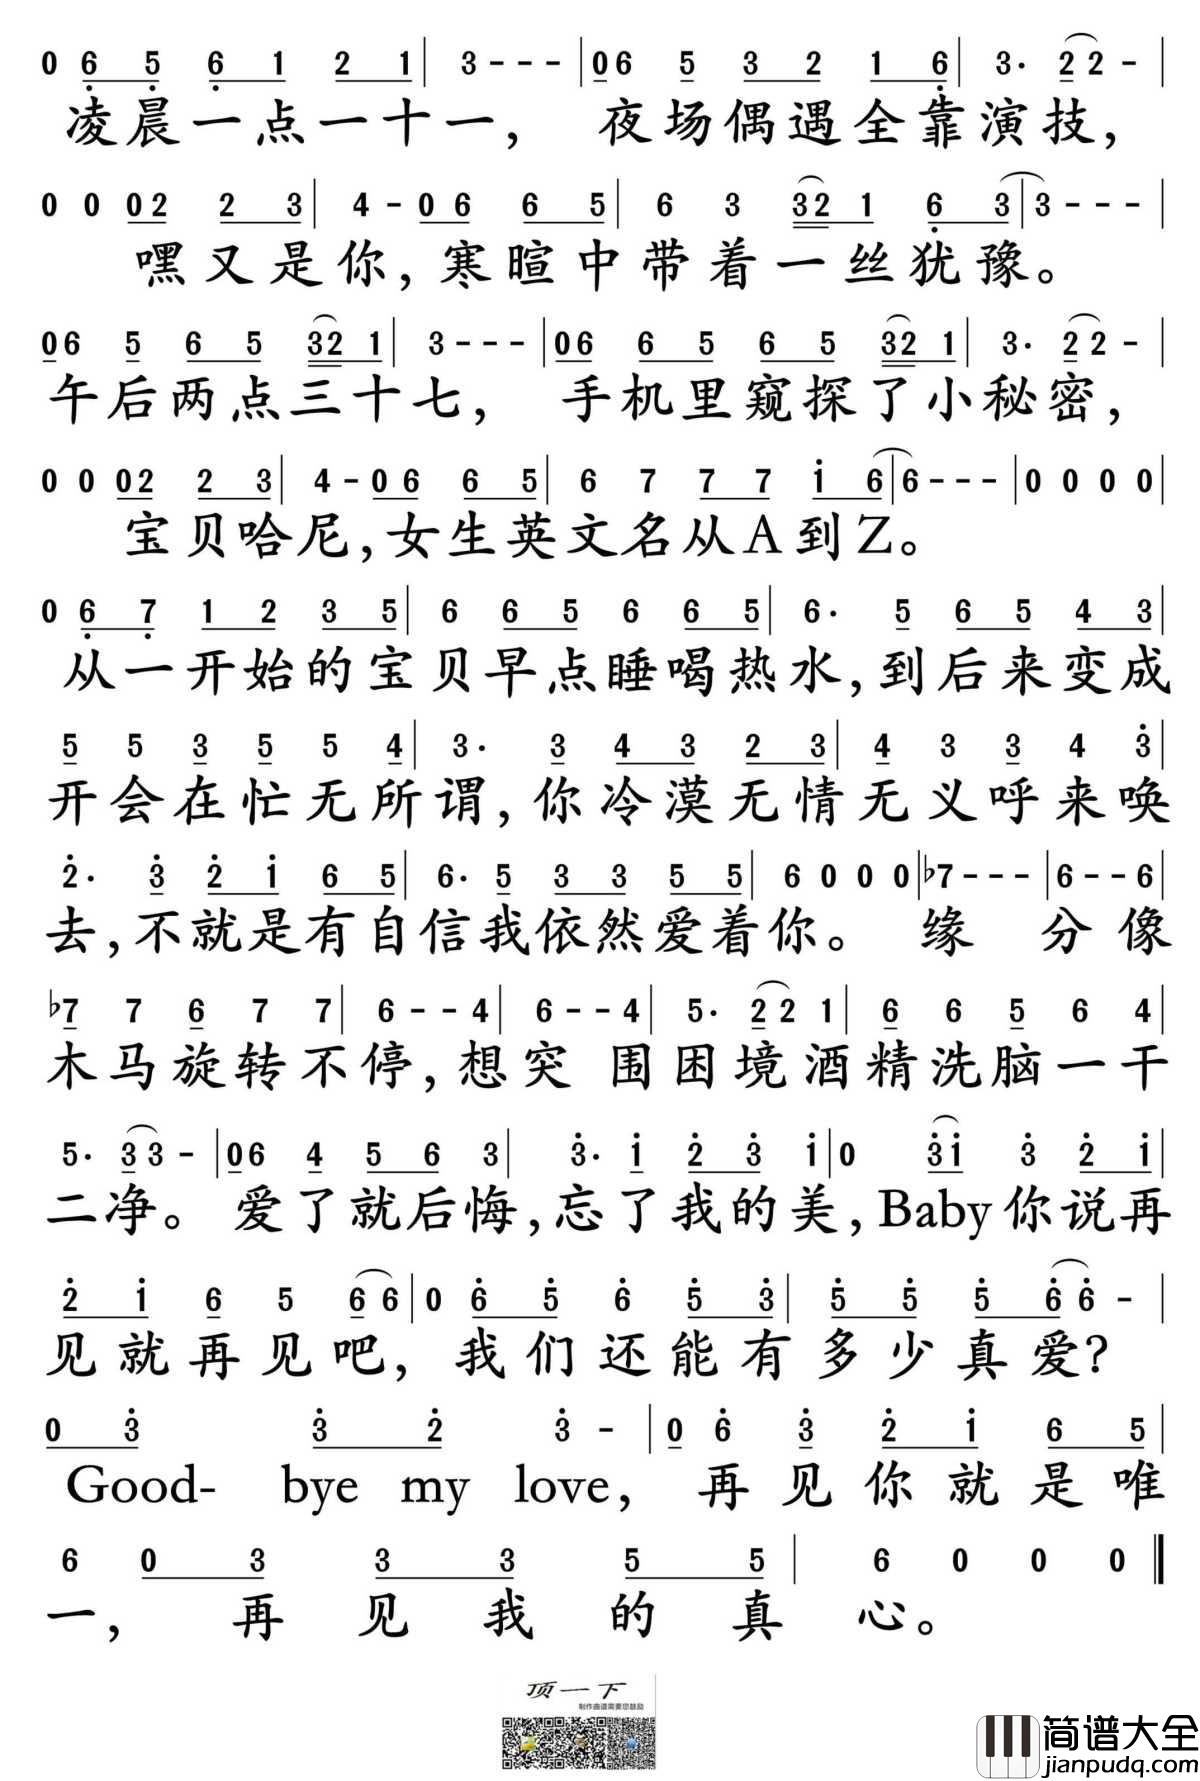 0 6 5 6 1 2 1 | 3 - - - | 0 6 5 3 2 1 6 | 3 · 2 2 - |
凌晨一点一十一， 夜场偶遇全靠演技，
0 0 0 2 2 3 | 4 - 0 6 6 5 | 6 3 3 2 1 6 3 | 3 - - - |
嘿又是你，寒暄中带着一丝犹豫。
0 6 5 6 5 3 2 1 | 3 - - - | 0 6 6 5 6 5 3 2 1 | 3 · 2 2 - |
午后两点三十七， 手机里窥探了小秘密，
0 0 0 2 2 3 | 4 - 0 6 6 5 | 6 7 7 7 i 6 | 6 - - - | 0 0 0 0 |
宝贝哈尼，女生英文名从A到Z。
0 6 7 1 2 3 5 | 6 6 5 6 6 5 | 6 · 5 6 5 4 3 |
从一开始的宝贝早点睡喝热水，到后来变成
5 5 3 5 5 4 | 3 · 3 4 3 2 3 | 4 3 3 4 3 |
开会在忙无所谓，你冷漠无情无义呼来唤
2 · 3 2 i 6 5 | 6 · 5 3 3 5 5 | 6 0 0 0 | ♭7 - - - | 6 - - 6 |
去，不就是有自信我依然爱着你。 缘 分像
♭7 7 6 7 7 | 6 - - 4 | 6 - - 4 | 5 · 2 2 1 | 6 6 5 6 4 |
木马旋转不停，想突 围困境酒精洗脑一干
5 · 3 3 - | 0 6 4 5 6 3 | 3 · i 2 3 i | 0 3 i 3 2 i |
二净。 爱了就后悔，忘了我的美，Baby你说再
2 i 6 5 6 6 | 0 6 5 6 5 3 | 5 5 5 6 6 - |
见就再见吧，我们还能有多少真爱？
0 3 3 2 3 - | 0 6 3 2 i 6 5 |
Good- bye my love，再见你就是唯
6 0 3 3 3 5 5 | 6 0 0 0 ‖
一， 再见我的真心。
顶一下
制作曲谱需要您鼓励
简谱大全
jianpudq.com